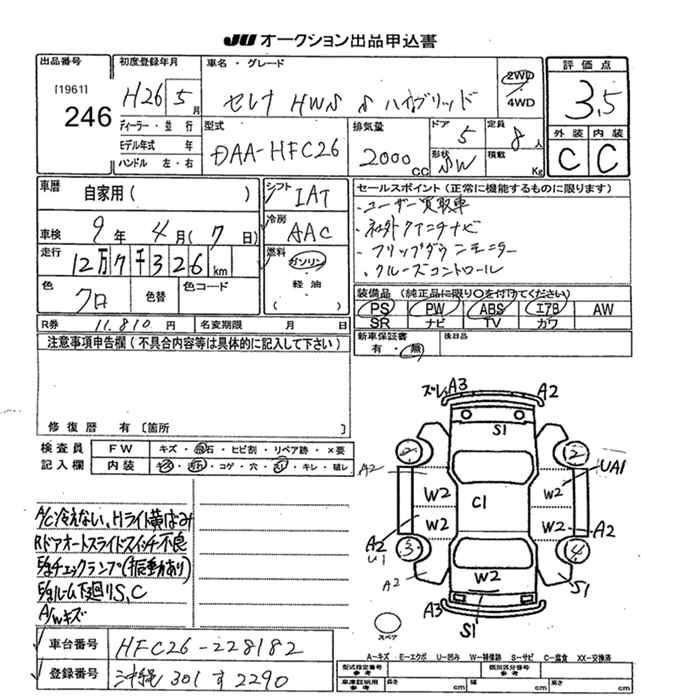 JU オークション出品申込書
出品番号
[1961]
246
初度登録年月
H26 5月
ディーラー・並行
モデル年式 年
ハンドル 左・右
車名・グレード
セレナ HWS S ハイブリッド
2WD
4WD
型式
DAA-HFC26
排気量
2000cc
ドア
5
定員
8人
形状
SW
積載
Kg
評価点
3,5
外装 内装
C C
車歴
自家用( )
車検
9年4月(7日)
走行
12万7千326km
色
クロ
色替
色コード
シフト
IAT
冷房
AAC
燃料
ガソリン
・
軽油
( )
セールスポイント(正常に機能するものに限ります)
・ユーザー買取車
・社外ワイニチナビ
・フリップダウンモニター
・クルーズコントロール
装備品(純正品に限り○を付けてください)
PS PW ABS エアB AW
SR ナビ TV カワ
R券
11.810円
名変期限 月 日
新車保証書
有・無
後日品
注意事項申告欄(不具合内容等は具体的に記入して下さい)
修復歴 有[箇所 ]
検査員
記入欄
FW キズ・飛石・ヒビ割・リペア跡・×要
内装 キズ・汚れ・コゲ・穴・スリ・キレ・破レ
A/C冷えない、Hライト黄ばみ
Rドアオートスライドスイッチ不良
E/gチェックランプ(振動あり)
E/gルーム下廻りS,C
A/wキズ
車台番号
HFC26-228182
登録番号
沖縄 301 す 2290
ズレA3 A2
S1
2 2
A2 UA1
W2 W2
C1
W2 W2
A2 A2
3 4
U1
A2 W2 S1
A3 S1
スペア
A-キズ E-エクボ U-凹み W-補修跡 S-サビ C-腐食 XX-交換済
型式指定番号
参考
類別区分番号
参考
車庫証明用
参考
長さ cm 幅 cm 高さ cm